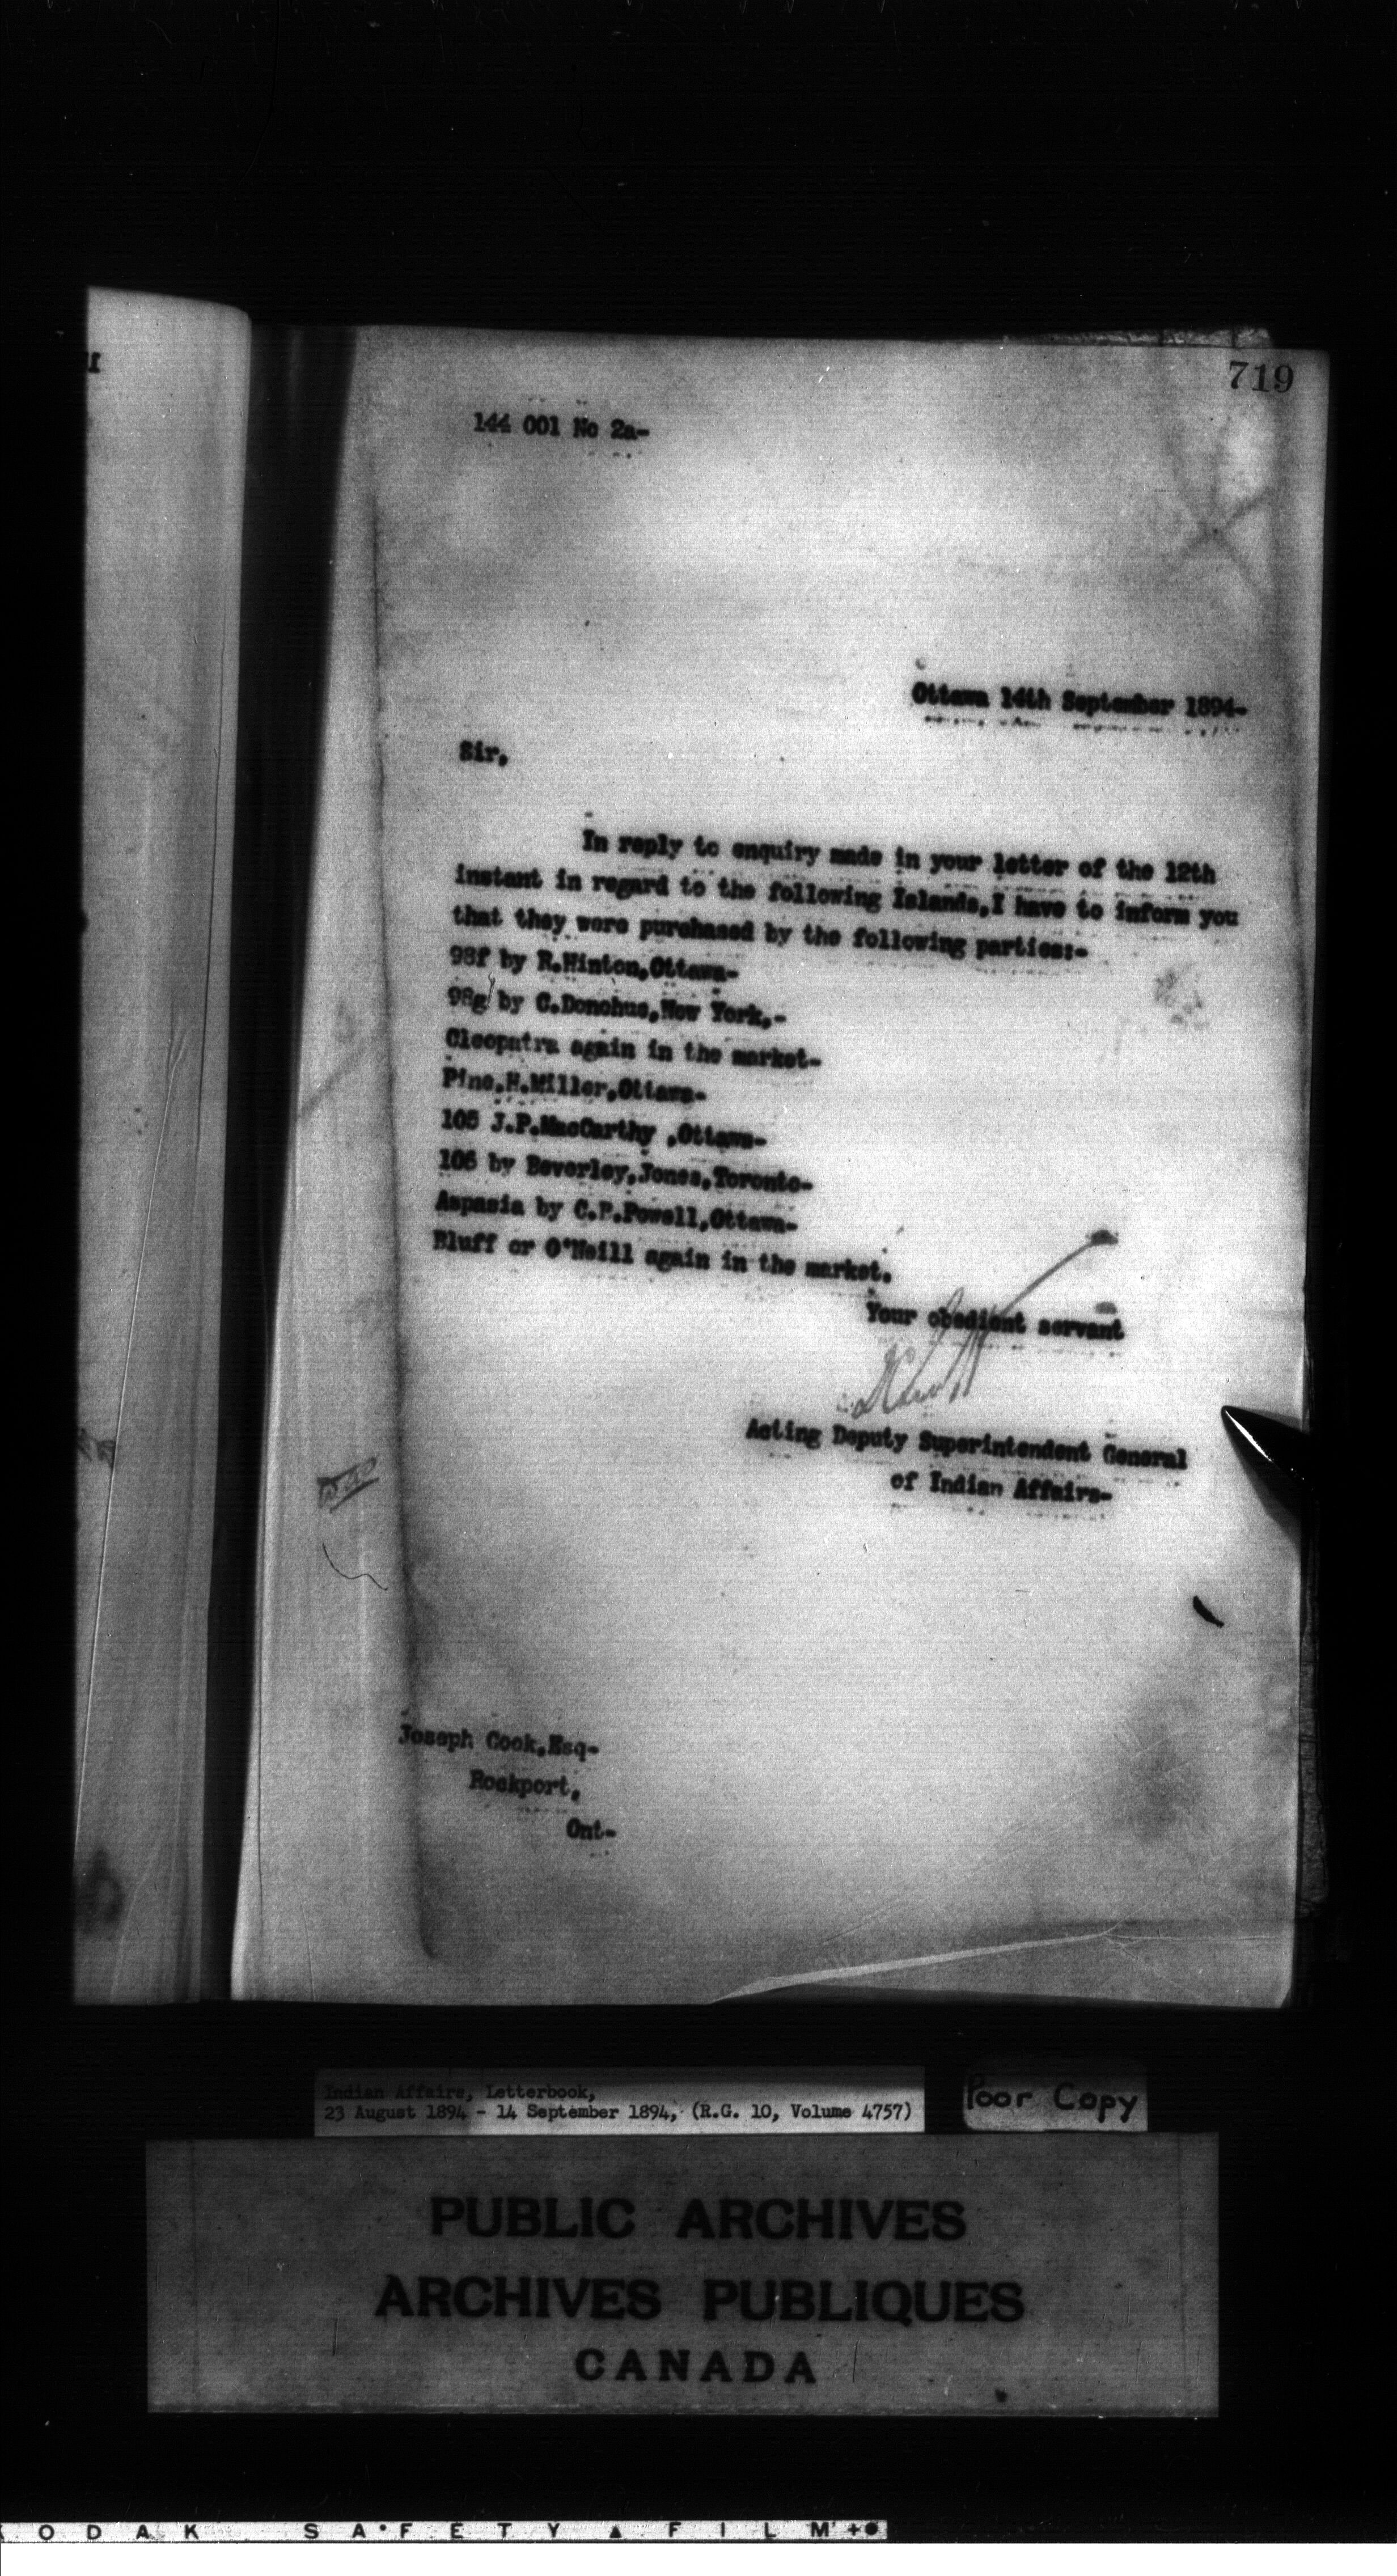 719
144 001 No 2a-
Ottawa 14th September 1894-
Sir,
In reply to enquiry made in your letter of the 12th
instant in regard to the following Islands,I have to inform you
that they were purchased by the following parties:-
98f by R.Hinton,Ottawa-
98g by C.Donohue,New York,-
Cleopatra again in the market-
Pine,H.Miller,Ottawa-
105 J.P.MacCarthy ,Ottawa-
106 by Beverley,Jones,Toronto-
Aspasia by C.F.Powell,Ottawa-
Bluff or O'Neill again in the market.
Your obedient servant
Acting Deputy Superintendent General
of Indian Affairs-
Joseph Cook,Esq-
Rockport,
Ont-
Indian Affairs, Letterbook,
23 August 1894 - 14 September 1894, (R.G. 10, Volume 4757)
Poor Copy
PUBLIC ARCHIVES
ARCHIVES PUBLIQUES
CANADA
KODAK SAFETY FILM